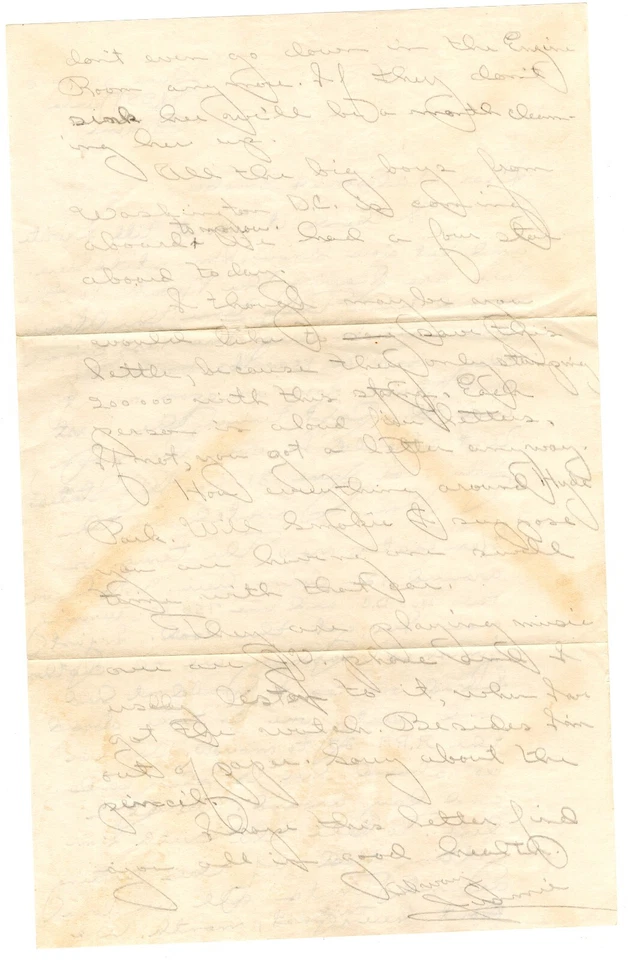 don't even go down in the Engine
Room any more. If they don't
sink her we'll be a month clean-
ing her up.
All the big boys from
Washington D.C. is coming
tomorrow
aboard. We had a four star
aboard today.
I though maybe you
would like to save this
lettle, because they only stamping
200000 with this stamp. Each
person is aloud four letters.
If not, you got a letter anyway.
How everything around
Park. Will Smokie I suppose
you are having one swell
time with that car.
They are playing music
over are phone and I
uslly listen to it, when I've
got the watch. Besides I'm
out of paper. Sorry about the
pencil.
I hope this letter find
you all in good health.
Alway